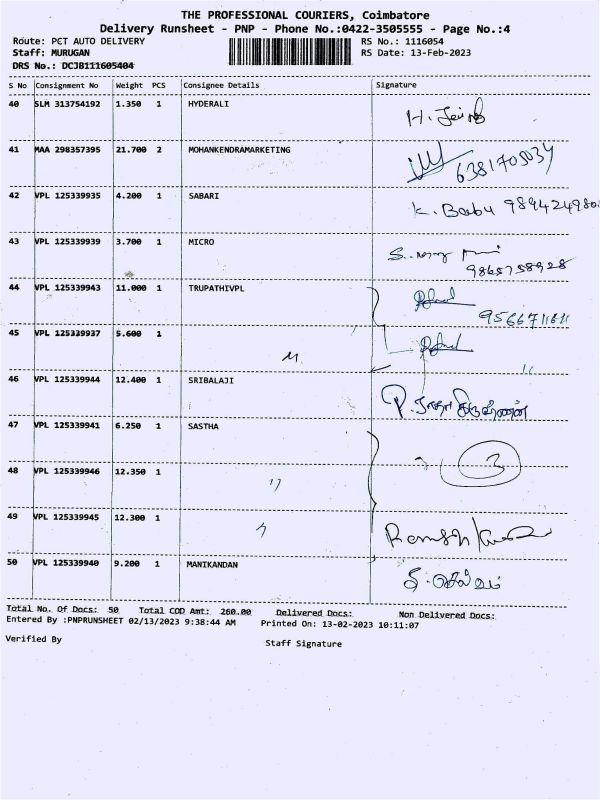 THE PROFESSIONAL COURIERS, Coimbatore
Delivery Runsheet - PNP - Phone No.:0422-3505555 - Page No.:4
Route: PCT AUTO DELIVERY RS No.: 1116054
Staff: MURUGAN RS Date: 13-Feb-2023
DRS No.: DCJB111605404
S No Consignment No Weight PCS Consignee Details Signature
40 SLM 313754192 1.350 1 HYDERALI H.
41 MAA 298357395 21.700 2 MOHANKENDRAMARKETING 6381705034
42 VPL 125339935 4.200 1 SABARI K. Babu 989424980
43 VPL 125339939 3.700 1 MICRO S.
9865758928
44 VPL 125339943 11.000 1 TRUPATHIVPL
9566711611
45 VPL 125339937 5.600 1 "
46 VPL 125339944 12.400 1 SRIBALAJI P.
47 VPL 125339941 6.250 1 SASTHA
3
48 VPL 125339946 12.350 1 "
49 VPL 125339945 12.300 1 " Ramesh Kumar
50 VPL 125339940 9.200 1 MANIKANDAN தி. செல்வம்
Total No. Of Docs: 50 Total COD Amt: 260.00 Delivered Docs: Non Delivered Docs:
Entered By :PNPRUNSHEET 02/13/2023 9:38:44 AM Printed On: 13-02-2023 10:11:07
Verified By Staff Signature